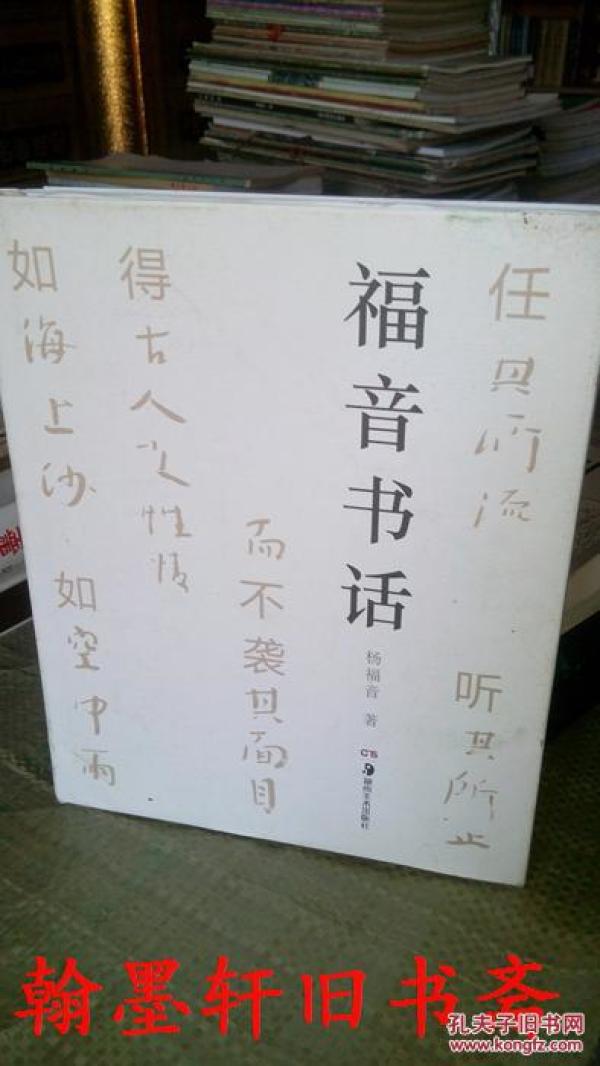 任其所流
听其所止
福音书话
杨福音 著
湖南美术出版社
而不袭其面目
得古人之性情
如海上沙
如空中雨
翰墨轩旧书斋
孔夫子旧书网
www.kongfz.com